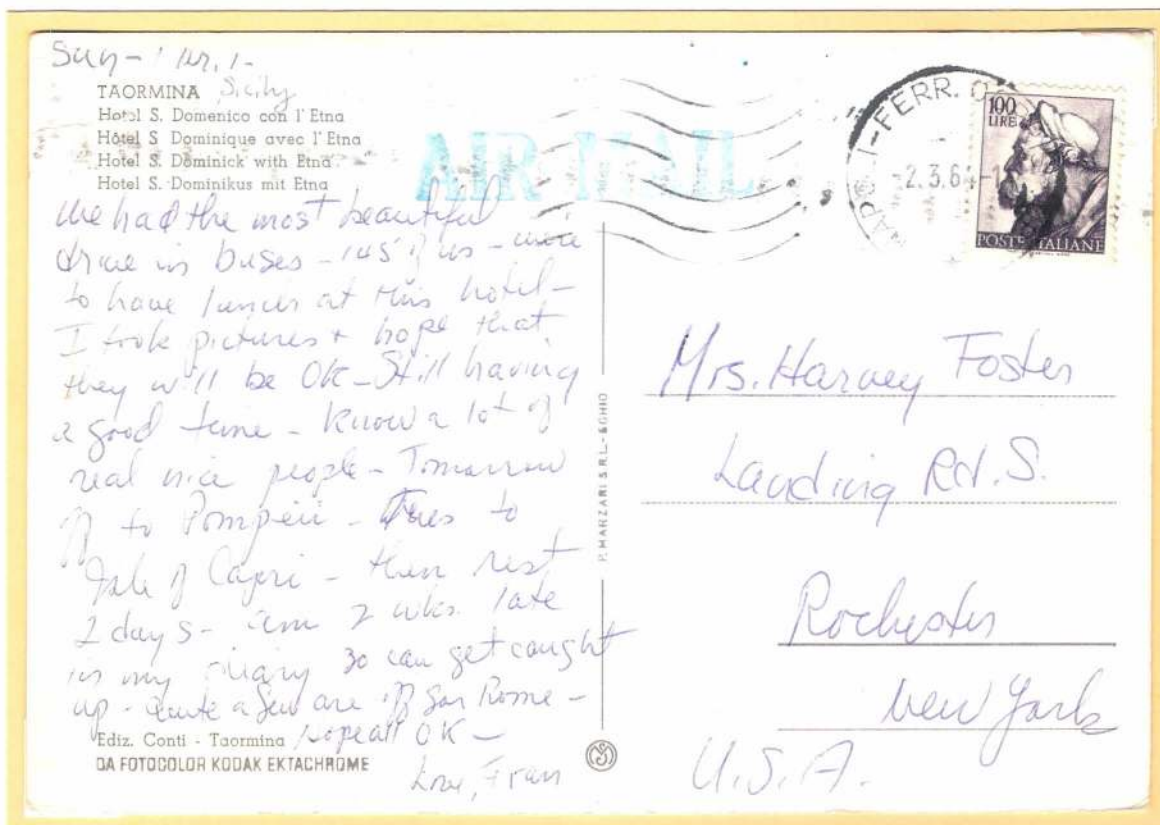 Sun - Mar. 1 -
TAORMINA Sicily
Hotel S. Domenico con l'Etna
Hôtel S Dominique avec l'Etna
Hotel S. Dominick with Etna
Hotel S. Dominikus mit Etna
AIR MAIL
We had the most beautiful
drive in buses - 145 of us -
to have lunch at this hotel -
I took pictures + hope that
they will be OK - Still having
a good time - Know a lot of
real nice people - Tomorrow
off to Pompeii - Tues to
Isle of Capri - then rest
2 days - am 2 wks. late
in my diary so can get caught
up - Quite a few are off for Rome -
Hope all OK -
Love, Fran
Ediz. Conti - Taormina
DA FOTOCOLOR KODAK EKTACHROME
P. MARZARI S.R.L. - SCHIO
NAPOLI-FERR.
2.3.64
100
LIRE
POSTE ITALIANE
Mrs. Harvey Foster
Landing Rd. S.
Rochester
New York
U.S.A.